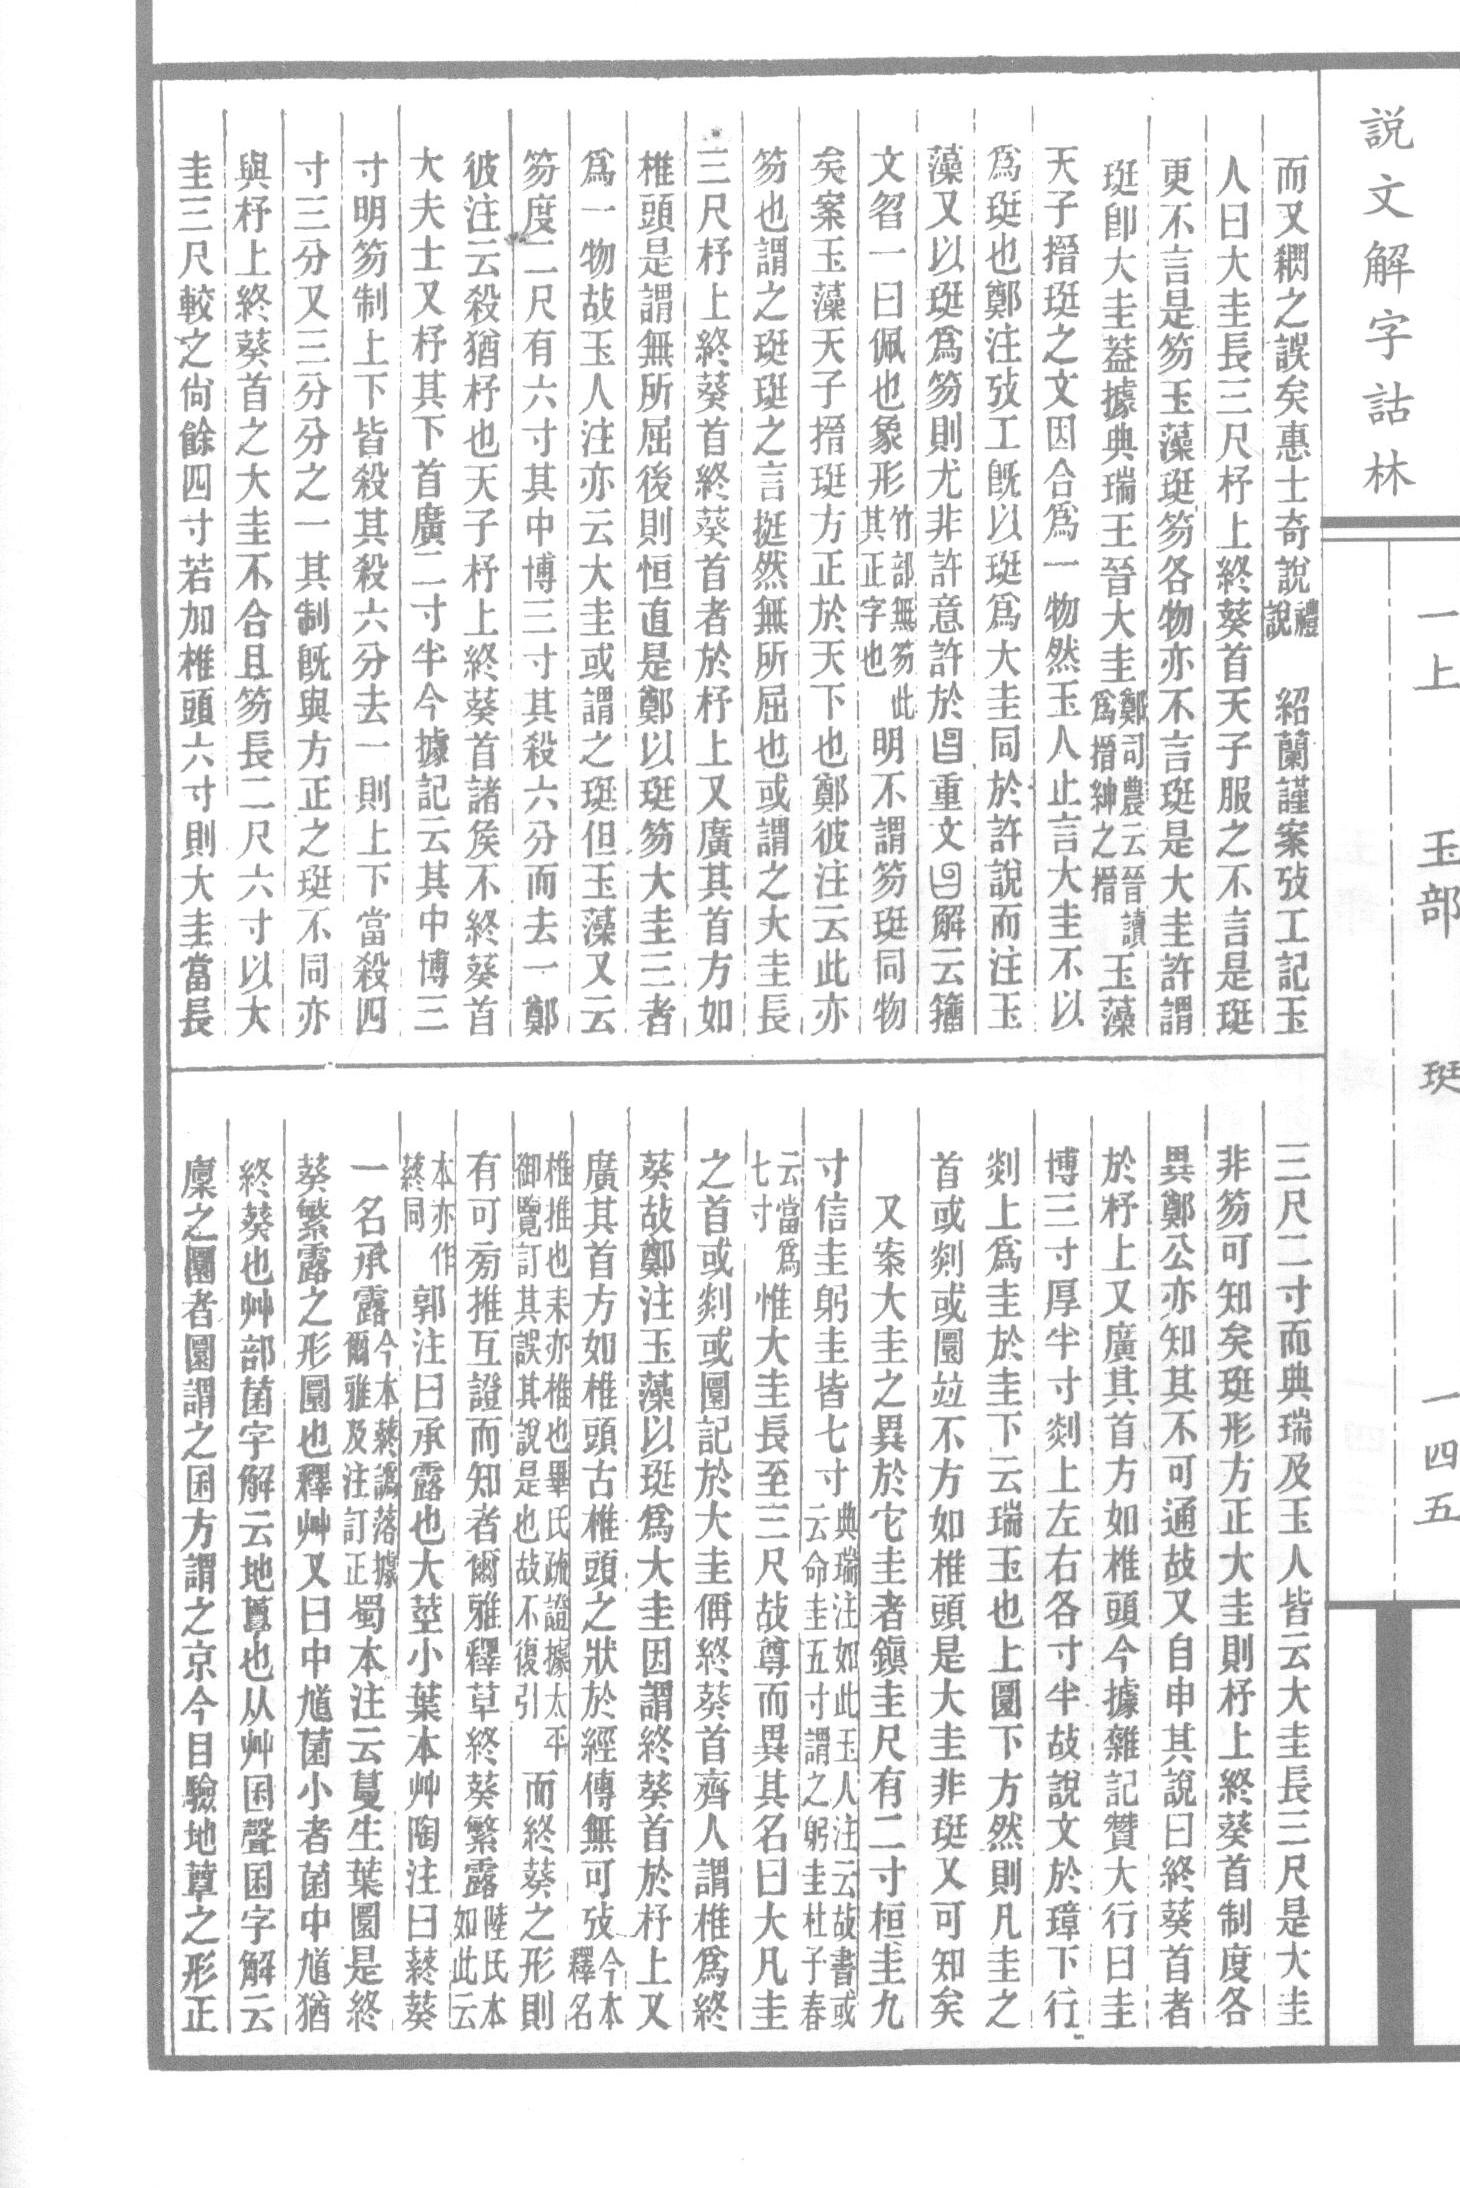 説文解字詁林
一上　玉部　珽　一四五
而又稠之誤矣惠士奇說禮說　紹蘭謹案攷工記玉
人曰大圭長三尺杼上終葵首天子服之不言是珽
更不言是笏玉藻珽笏各物亦不言珽是大圭許謂
珽卽大圭蓋據典瑞王晉大圭鄭司農云晉讀爲搢紳之搢玉藻
天子搢珽之文因合爲一物然玉人止言大圭不以
爲珽也鄭注攷工旣以珽爲大圭同於許說而注玉
藻又以珽爲笏則尤非許意許於曶重文曶解云籒
文曶一曰佩也象形竹部無笏此其正字也明不謂笏珽同物
矣案玉藻天子搢珽方正於天下也鄭彼注云此亦
笏也謂之珽珽之言挺然無所屈也或謂之大圭長
三尺杼上終葵首終葵首者於杼上又廣其首方如
椎頭是謂無所屈後則恒直是鄭以珽笏大圭三者
爲一物故玉人注亦云大圭或謂之珽但玉藻又云
笏度二尺有六寸其中博三寸其殺六分而去一鄭
彼注云殺猶杼也天子杼上終葵首諸侯不終葵首
大夫士又杼其下首廣二寸半今據記云其中博三
寸明笏制上下皆殺其殺六分去一則上下當殺四
寸三分又三分分之一其制旣與方正之珽不同亦
與杼上終葵首之大圭不合且笏長二尺六寸以大
圭三尺較之尙餘四寸若加椎頭六寸則大圭當長
三尺二寸而典瑞及玉人皆云大圭長三尺是大圭
非笏可知矣珽形方正大圭則杼上終葵首制度各
異鄭公亦知其不可通故又自申其說曰終葵首者
於杼上又廣其首方如椎頭今據雜記贊大行曰圭
博三寸厚半寸剡上左右各寸半故說文於璋下行
剡上爲圭於圭下云瑞玉也上圜下方然則凡圭之
首或剡或圜竝不方如椎頭是大圭非珽又可知矣
又案大圭之異於它圭者鎭圭尺有二寸桓圭九
寸信圭躬圭皆七寸典瑞注如此玉人注云故書或云命圭五寸謂之躬圭杜子春
云當爲七寸惟大圭長至三尺故尊而異其名曰大凡圭
之首或剡或圜記於大圭偁終葵首齊人謂椎爲終
葵故鄭注玉藻以珽爲大圭因謂終葵首於杼上又
廣其首方如椎頭古椎頭之狀於經傳無可攷今本釋名
椎推也耒亦椎也畢氏疏證據太平御覽訂其誤其說是也故不復引而終葵之形則
有可旁推互證而知者爾雅釋草終葵繁露陸氏本如此云
本亦作蔠同郭注曰承露也大莖小葉本艸陶注曰蔠葵
一名承露今本蔠譌落據爾雅及注訂正蜀本注云蔓生葉圜是終
葵繁露之形圜也釋艸又曰中馗菌小者菌中馗猶
終葵也艸部菌字解云地蕈也从艸囷聲囷字解云
廩之圜者圜謂之囷方謂之京今目驗地蕈之形正